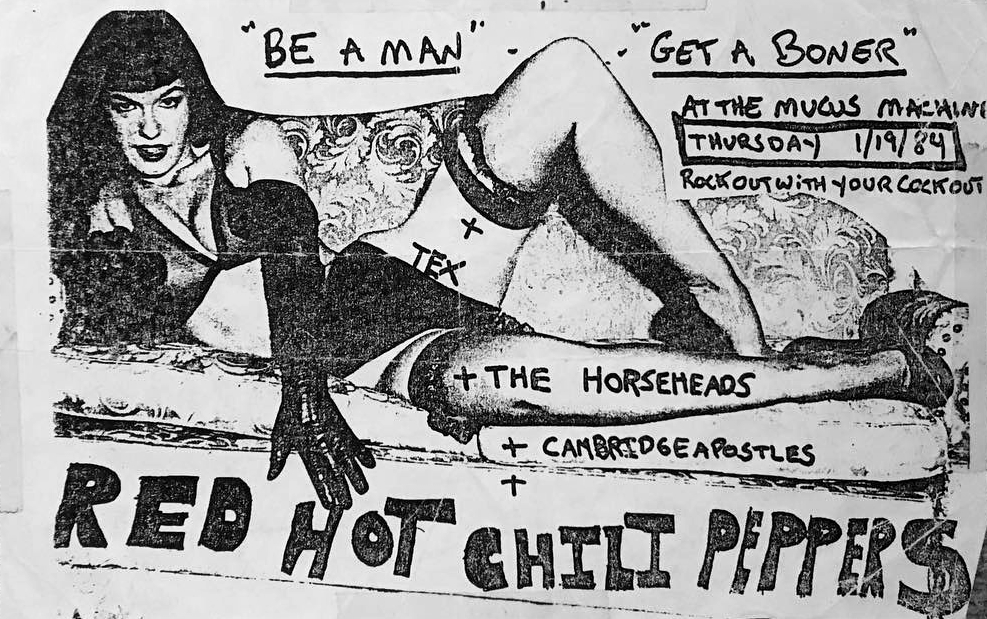 "BE A MAN" - "GET A BONER"
AT THE MUCUS MACHINE
THURSDAY 1/19/84
ROCK OUT WITH YOUR COCK OUT
+
TEX
+ THE HORSEHEADS
+ CAMBRIDGE APOSTLES
+
RED HOT CHILI PEPPERS